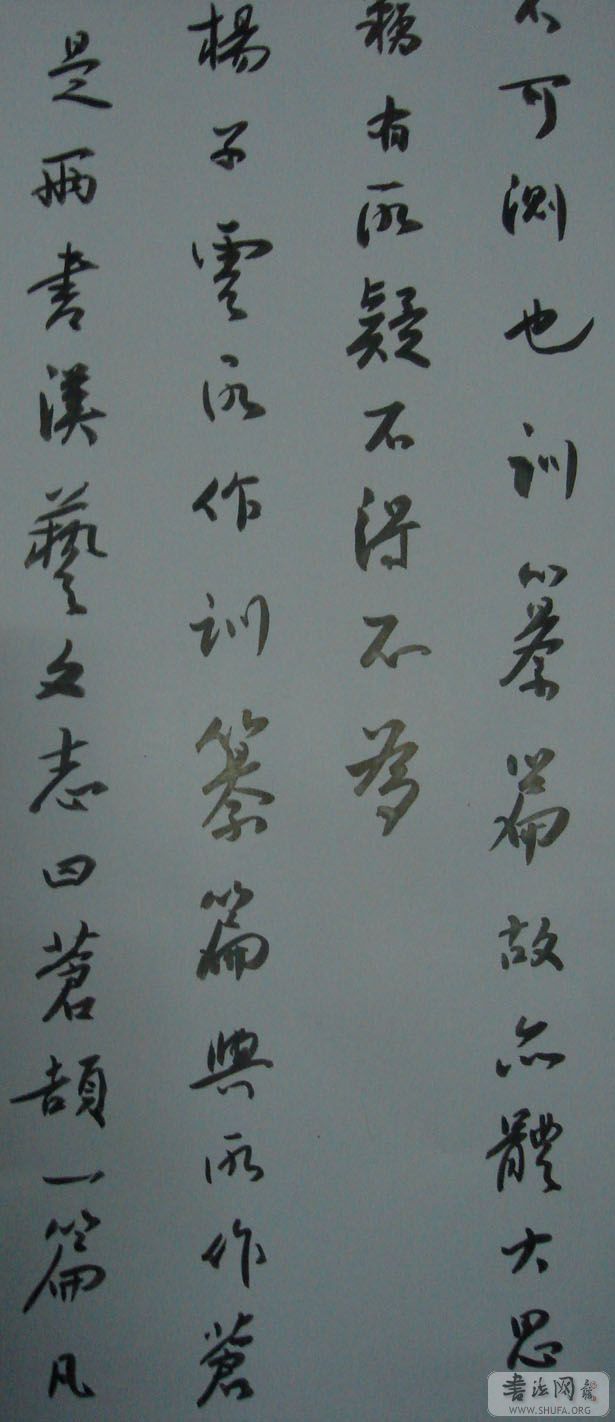 不可測也訓纂篇故亦體大思
有所疑不得不為
楊子雲所作訓纂篇與所作蒼
是兩書漢藝文志曰蒼頡一篇凡
書法网
WWW.SHUFA.ORG